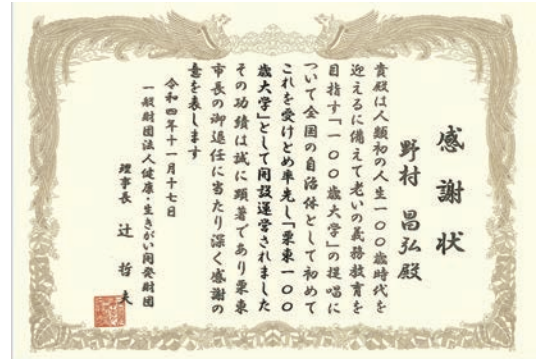 感謝状
野村 昌弘殿
貴殿は人類初の人生一〇〇歳時代を
迎えるに備えて老いの義務教育を
目指す「一〇〇歳大学」の提唱に
ついて全国の自治体として初めて
これを受けとめ率先し「栗東一〇〇
歳大学」として開設運営されました
その功績は誠に顕著であり栗東
市長の御退任に当たり深く感謝の
意を表します
令和四年十一月十七日
一般財団法人健康・生きがい開発財団
理事長 辻 哲夫